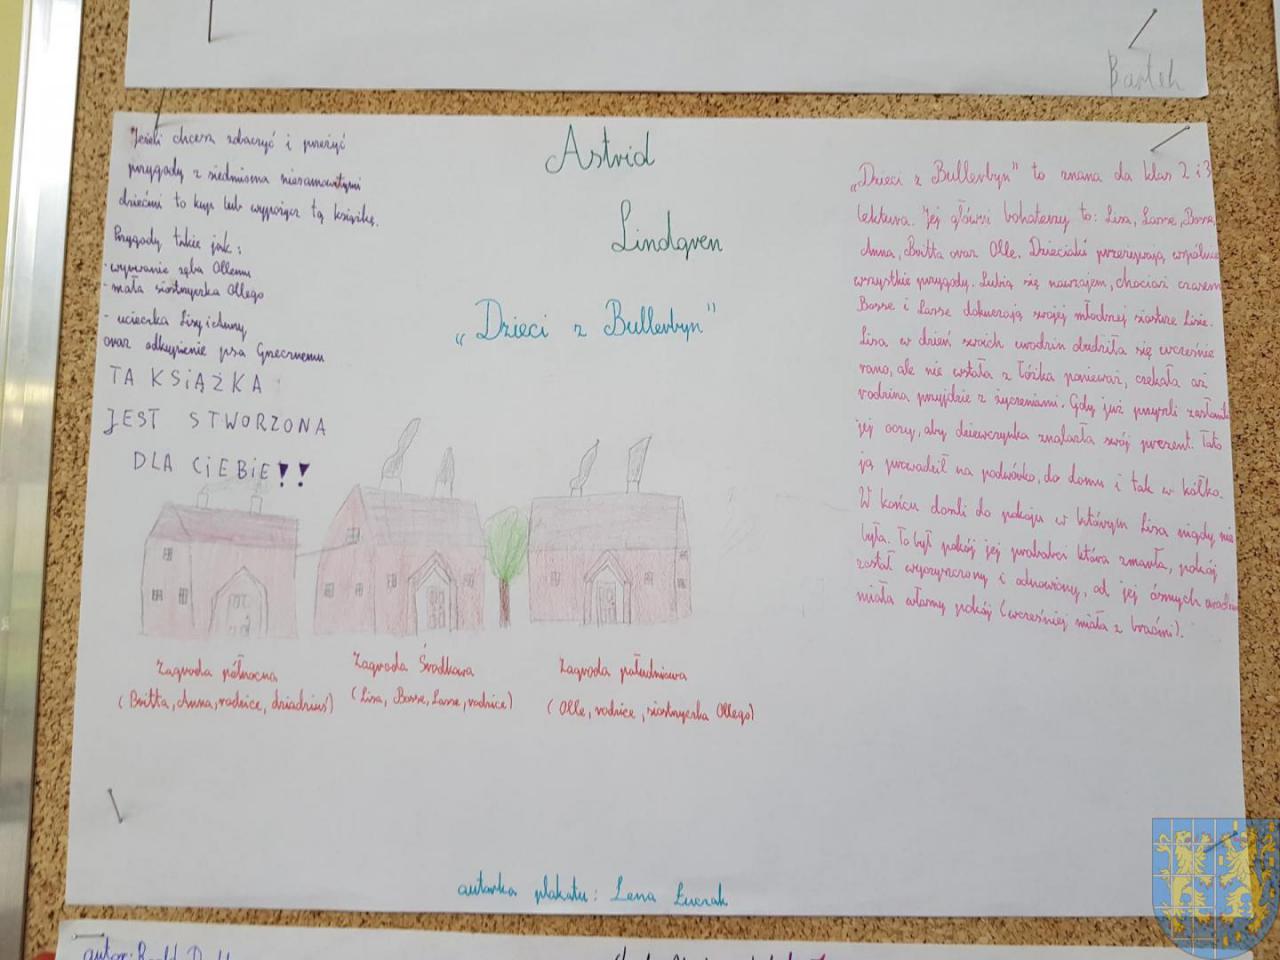 Bartek
Jeżeli chcesz zobaczyć i przeżyć
przygody z siedmioma niesamowitymi
dziećmi to kup lub wypożycz tą książkę.
Przygody takie jak:
- wyrwanie zęba Ollemu
- mała siostrzyczka Ollego
- ucieczka Lisy i Anny,
oraz odkupienie psa Grzecznemu
TA KSIĄŻKA
JEST STWORZONA
DLA CIEBIE!!
Astrid
Lindgren
„Dzieci z Bullerbyn"
Zagroda północna
(Britta, Anna, rodzice, dziadziuś)
Zagroda Środkowa
(Lisa, Bosse, Lasse, rodzice)
Zagroda południowa
(Olle, rodzice, siostrzyczka Ollego)
„Dzieci z Bullerbyn" to znana da klas 2 i 3
lektura. Jej główni bohaterzy to: Lisa, Lasse, Bosse,
Anna, Britta oraz Olle. Dzieciaki przeżywają wspólnie
wszystkie przygody. Lubią się nawzajem, chociaż czasem
Bosse i Lasse dokuczają swojej młodszej siostrze Lisie.
Lisa w dzień swoich urodzin obudziła się wcześnie
rano, ale nie wstała z łóżka ponieważ, czekała aż
rodzina przyjdzie z życzeniami. Gdy już przyszli zasłonili
jej oczy, aby dziewczynka znalazła swój prezent. Tato
ją prowadził na podwórko, do domu i tak w kółko.
W końcu doszli do pokoju w którym Lisa nigdy nie
była. To był pokój jej prababci która zmarła, pokój
został wyczyszczony i odnowiony, od jej ósmych urodzin
miała własny pokój (wcześniej miała z braćmi).
autorka plakatu: Lena
autor: Roald